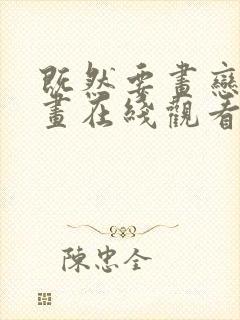 既然要畫戀
畫在綫觀看
陳忠全